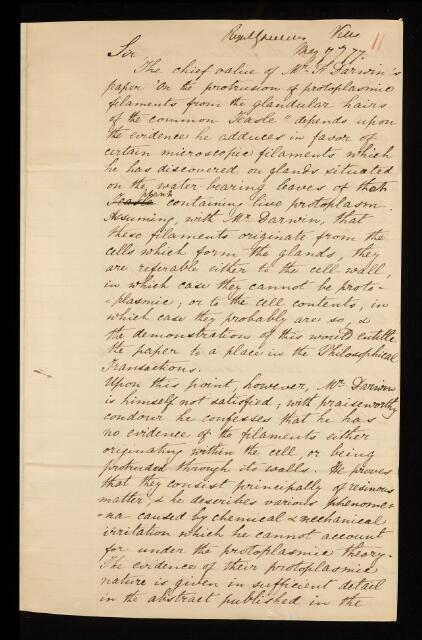 Royal Gardens Kew
May 7th 77. 11
Sir
The chief value of Mr. F. Darwin's
paper "On the protrusion of protoplasmic
filaments from the glandular hairs
of the common Teasle" depends upon
the evidence he adduces in favor of
certain microscopic filaments which
he has discovered on glands situated
on the water-bearing leaves of that
plant
Teasle containing live protoplasm.
Assuming, with Mr. Darwin, that
these filaments originate from the
cells which form the glands, they
are referable either to the cell wall,
in which case they cannot be proto-
-plasmic; or to the cell contents, in
which case they probably are so, &
the demonstration of this would entitle
the paper to a place in the Philosophical
Transactions.
Upon this point, however, Mr. Darwin
is himself not satisfied; with praiseworthy
candour he confesses that he has
no evidence of the filaments either
originating within the cell, or being
protruded through its walls. He proves
that they consist principally of resinous
matter, & he describes various phenome=
=na caused by chemical & mechanical
irritation which he cannot account
for under the protoplasmic theory.
The evidence of their protoplasmic
nature is given in sufficient detail
in the abstract published in the